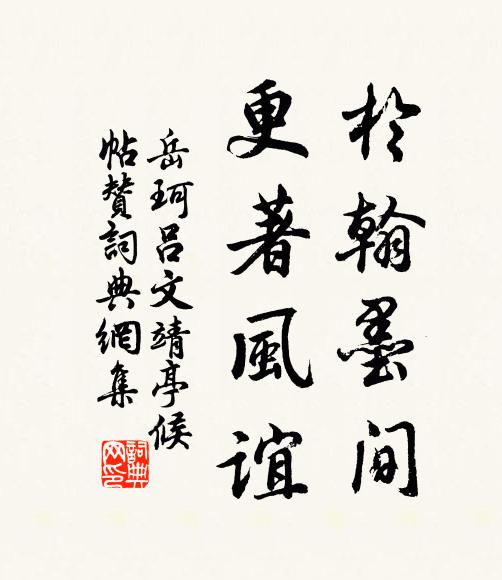 於翰墨間
更著風誼
岳珂吕文靖亭候
帖贊詞典網集
詞典
网印